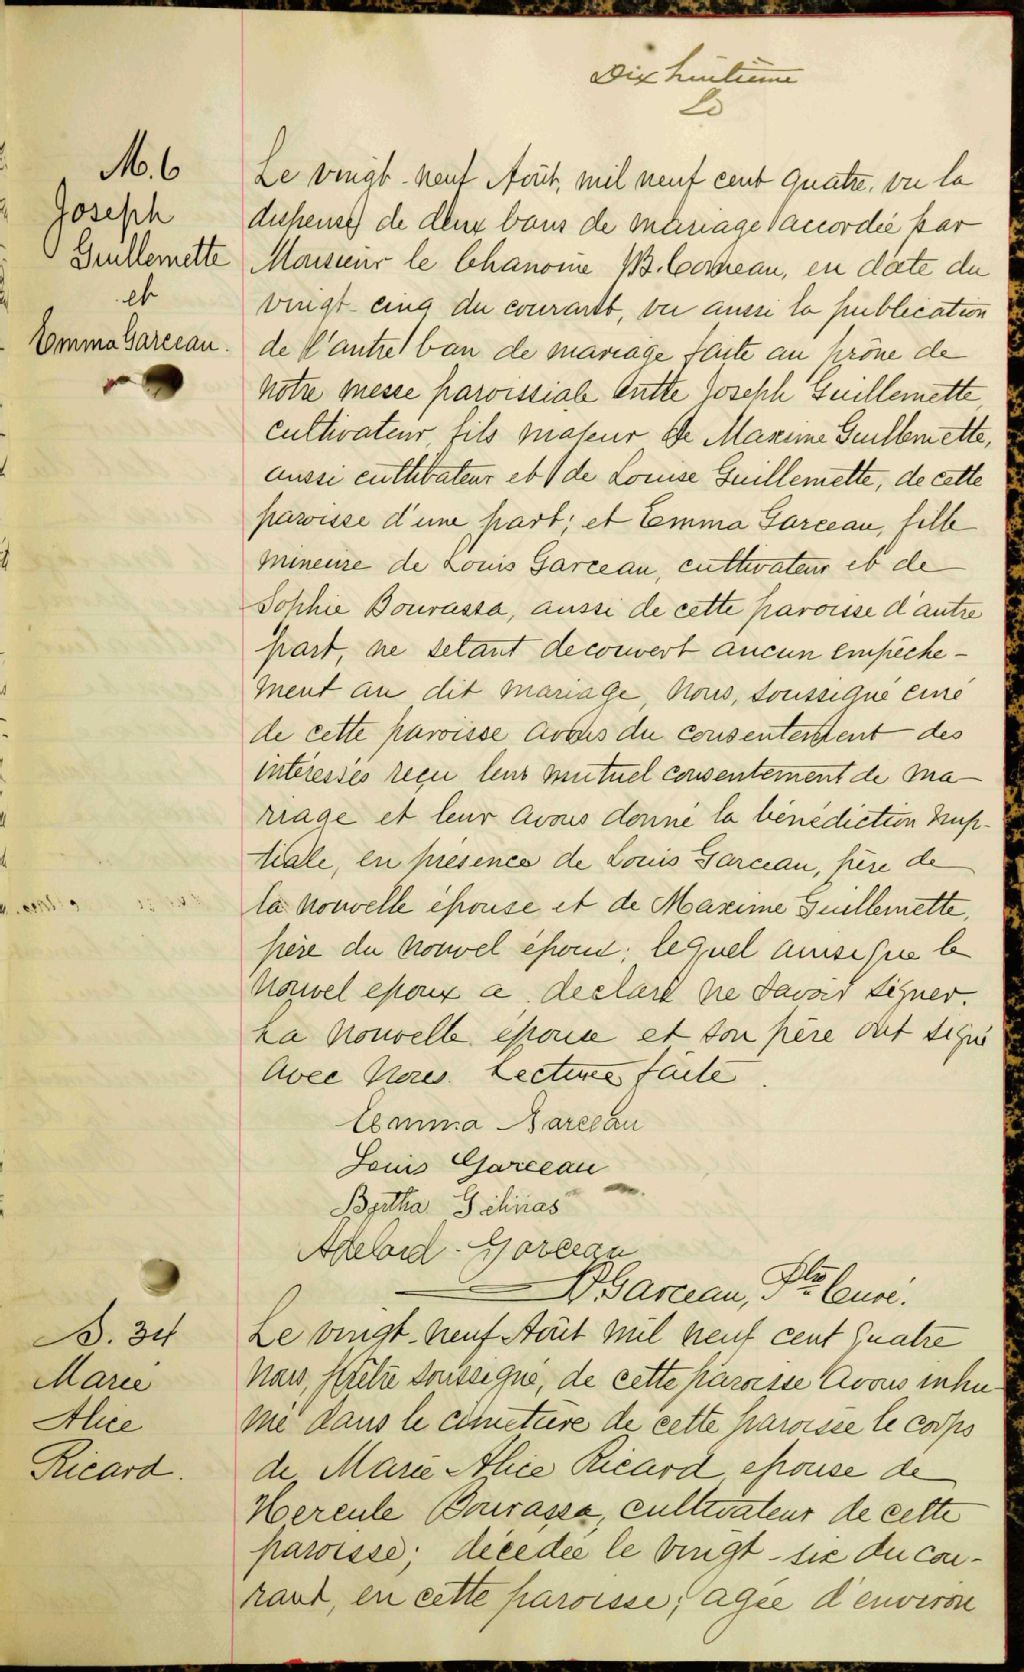 Dix huitième
M. 6
Joseph
Guillemette
et
Emma Garceau.
Le vingt-neuf Août, mil neuf cent quatre, vu la
dispense de deux bans de mariage accordée par
Monsieur le Chanoine J.B. Comeau, en date du
vingt-cinq du courant, vu aussi la publication
de l'autre ban de mariage faite au prône de
notre messe paroissiale entre Joseph Guillemette,
cultivateur, fils majeur de Maxime Guillemette,
aussi cultivateur et de Louise Guillemette, de cette
paroisse d'une part; et Emma Garceau, fille
mineure de Louis Garceau, cultivateur et de
Sophie Bourassa, aussi de cette paroisse d'autre
part, ne setant decouvert aucun empêche-
ment au dit mariage, Nous, soussigné curé
de cette paroisse avons du consentement des
intéressés reçu leur mutuel consentement de ma-
riage et leur avons donné la bénédiction nup-
tiale, en présence de Louis Garceau, père de
la nouvelle épouse et de Maxime Guillemette,
père du nouvel époux; lequel ainsi que le
nouvel epoux a declaré ne savoir signer.
La nouvelle épouse et son père ont signé
avec Nous. Lecture faite.
Emma Garceau
Louis Garceau
Bertha Gélinas
Adelard Garceau
Garceau, Ptre Curé.
S. 34
Marie
Alice
Ricard.
Le vingt-neuf Août mil neuf cent quatre
Nous, prêtre soussigné, de cette paroisse avons inhu-
mé dans le cimetière de cette paroisse le corps
de Marie Alice Ricard, epouse de
Hercule Bourassa, cultivateur de cette
paroisse; décédée le vingt-six du cou-
rant, en cette paroisse; agée d'environ